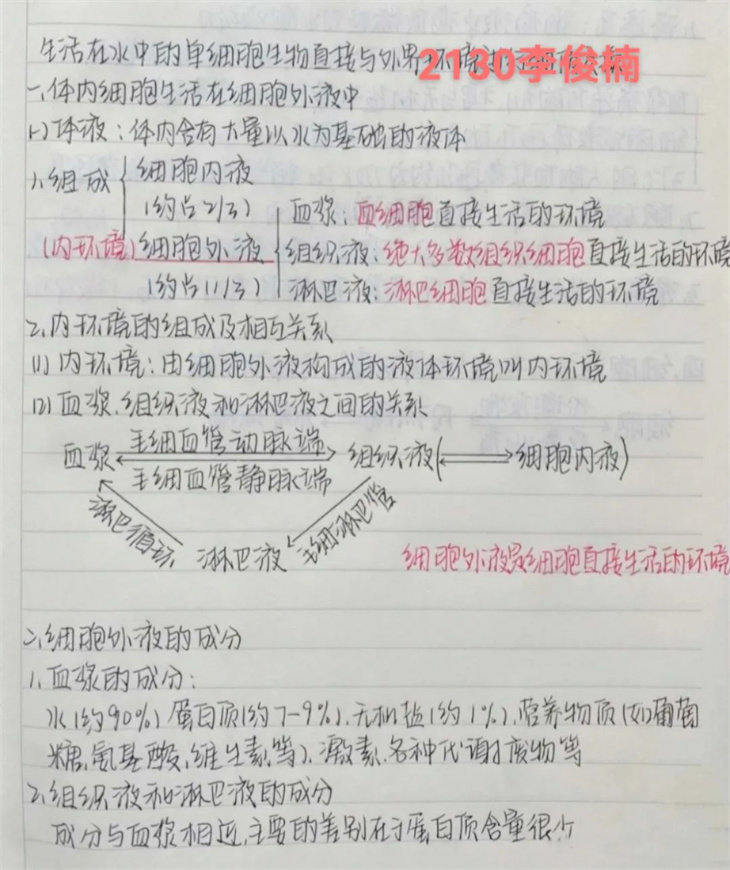 生活在水中的单细胞生物直接与外界环境
2130李俊楠
一、体内细胞生活在细胞外液中
(一)体液：体内含有大量以水为基础的液体
1.组成
细胞内液
(约占2/3)
血浆：血细胞直接生活的环境
(内环境)细胞外液
组织液：绝大多数组织细胞直接生活的环境
(约占1/3)
淋巴液：淋巴细胞直接生活的环境
2.内环境的组成及相互关系
(1)内环境：由细胞外液构成的液体环境叫内环境
(2)血浆.组织液和淋巴液之间的关系
毛细血管动脉端
血浆 组织液( 细胞内液)
毛细血管静脉端
淋巴循环 淋巴液 毛细淋巴管
细胞外液是细胞直接生活的环境
二、细胞外液的成分
1.血浆的成分：
水(约90%)蛋白质(约7-9%).无机盐(约1%).营养物质(如葡萄
糖.氨基酸.维生素等).激素.各种代谢废物等
2.组织液和淋巴液的成分
成分与血浆相近,主要的差别在于蛋白质含量很少